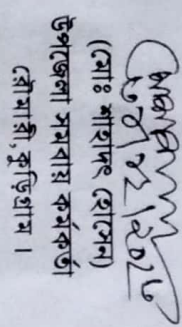 (মোঃ শাহাদৎ হোসেন)
উপজেলা সমবায় কর্মকর্তা
রৌমারী, কুড়িগ্রাম ।